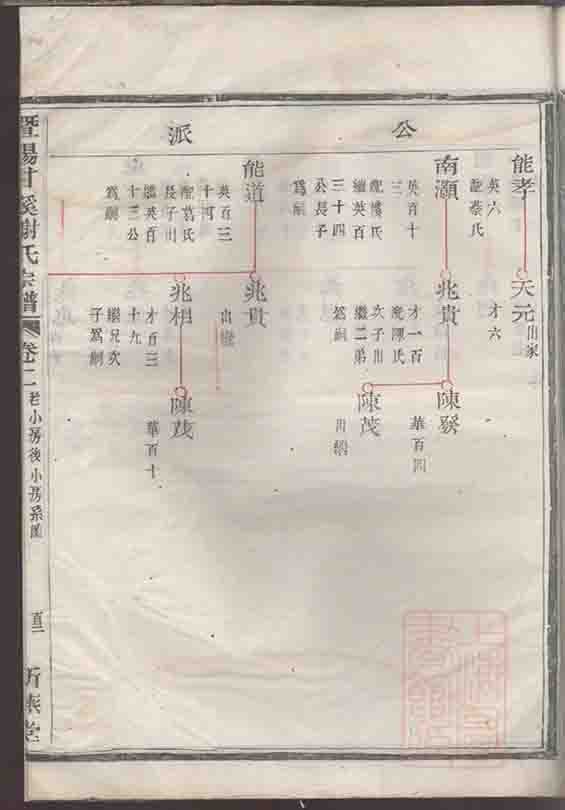 公
派
能孝
英六
配蔡氏
天元
出家
才六
南灝
英百十
三
配
氏
繼英百
三十四
公長子
為嗣
兆貴
才一百
配陳氏
次子出
繼二弟
為嗣
陳發
華百四
陳茂
出繼
能道
英百三
十
配葛氏
長子出
繼英百
十三公
為嗣
兆貴
出繼
兆相
才百三
十九
繼兄次
子為嗣
陳茂
華百十
暨陽甘溪謝氏宗譜
卷二
老小房後小房系圖